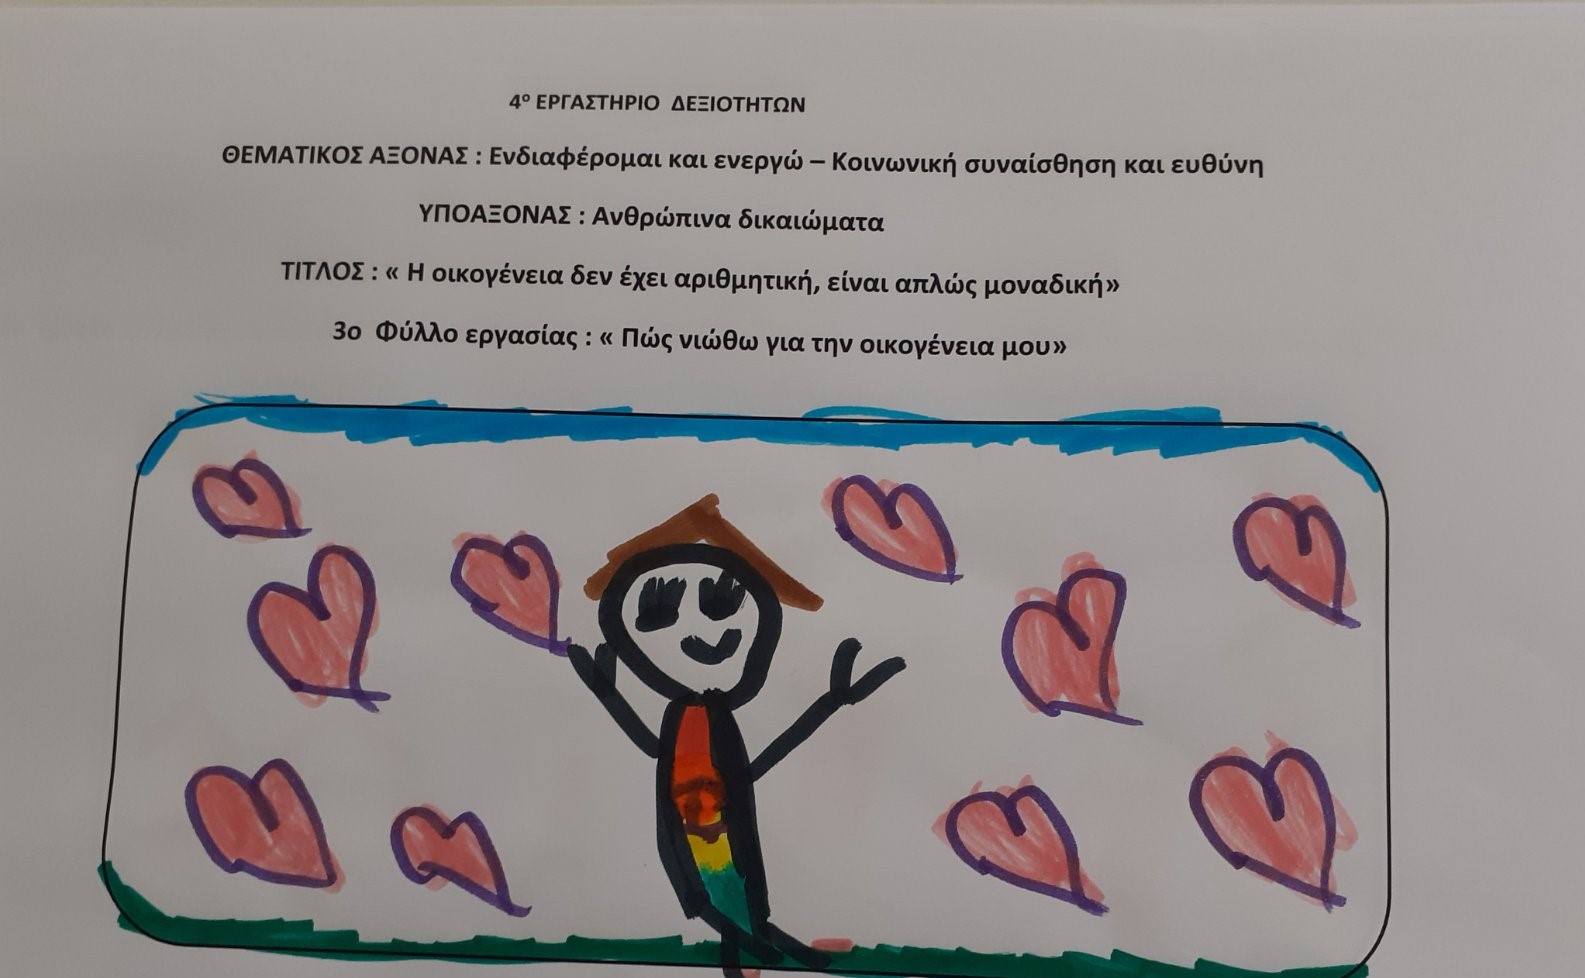 4ο ΕΡΓΑΣΤΗΡΙΟ ΔΕΞΙΟΤΗΤΩΝ
ΘΕΜΑΤΙΚΟΣ ΑΞΟΝΑΣ : Ενδιαφέρομαι και ενεργώ – Κοινωνική συναίσθηση και ευθύνη
ΥΠΟΑΞΟΝΑΣ : Ανθρώπινα δικαιώματα
ΤΙΤΛΟΣ : « Η οικογένεια δεν έχει αριθμητική, είναι απλώς μοναδική»
3ο Φύλλο εργασίας : « Πώς νιώθω για την οικογένεια μου»